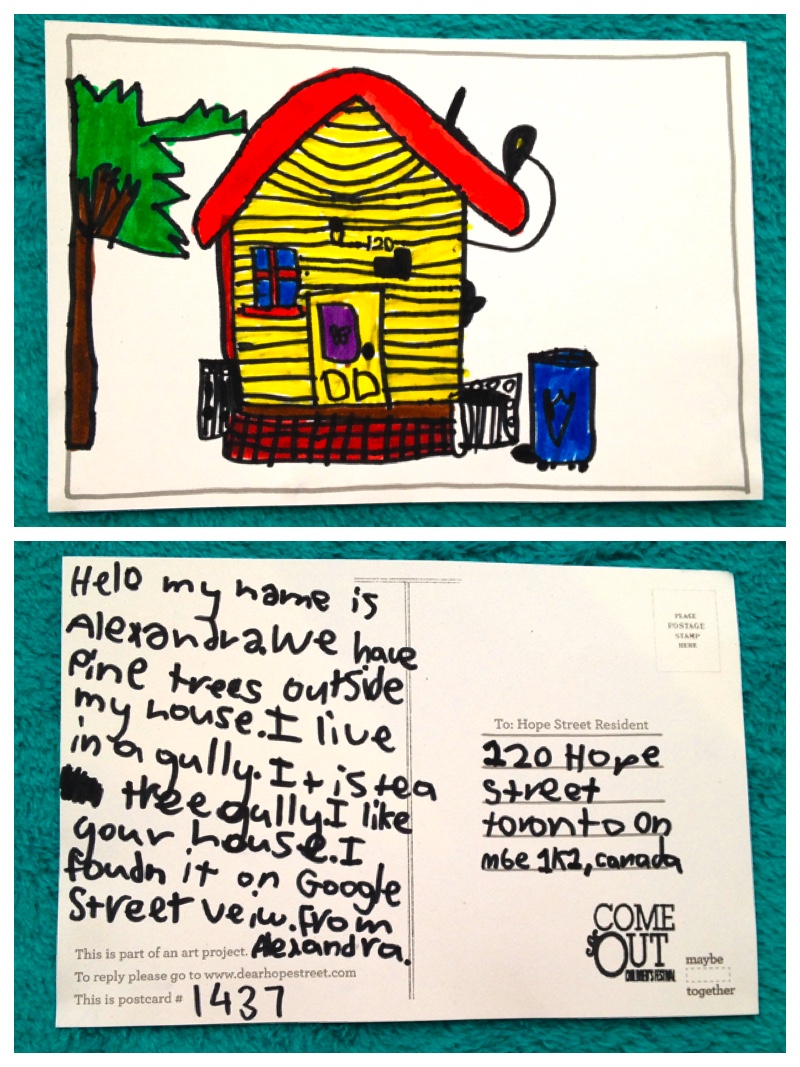 120
Helo my name is
Alexandra We have
Pine trees outside
my house. I live
in a gully. It is tea
tree gully. I like
your house. I
foudn it on Google
Street veiw. From
Alexandra.
This is part of an art project.
To reply please go to www.dearhopestreet.com
This is postcard # 1437
PLACE
POSTAGE
STAMP
HERE
To: Hope Street Resident
120 Hope
Street
toronto On
m6e 1K2, canada
COME
OUT
CHILDREN'S FESTIVAL
maybe
together